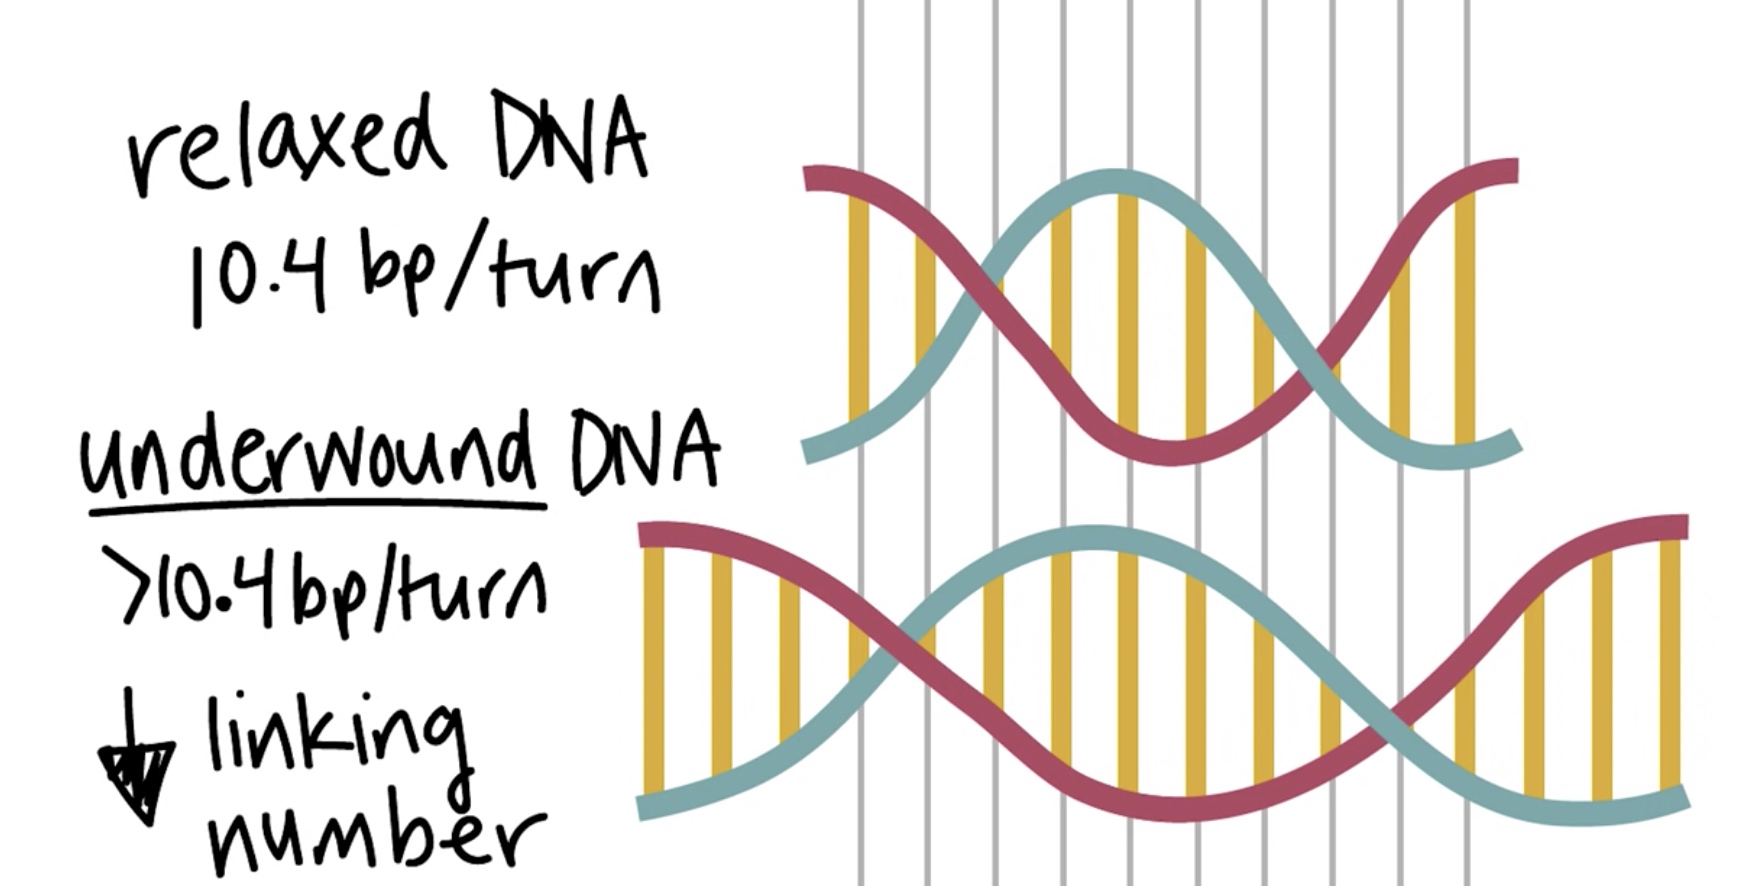 relaxed DNA
10.4 bp/turn
underwound DNA
>10.4 bp/turn
↓ linking
number